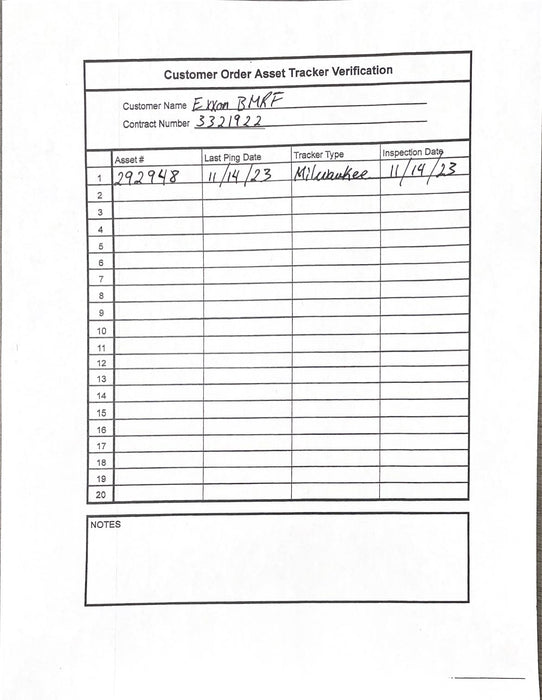 Customer Order Asset Tracker Verification
Customer Name Exxon BMRF
Contract Number 3321922
Asset # Last Ping Date Tracker Type Inspection Date
1 292948 11/14/23 Milwaukee 11/14/23
2
3
4
5
6
7
8
9
10
11
12
13
14
15
16
17
18
19
20
NOTES